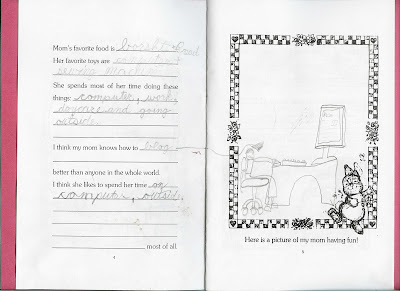 Mom's favorite food is
Her favorite toys are
sewing machine
She spends most of her time doing these
things: computer, work,
daycare and going
outside.
I think my mom knows how to blog
better than anyone in the whole world.
I think she likes to spend her time on
computer, outside,
most of all.
4
Here is a picture of my mom having fun!
5